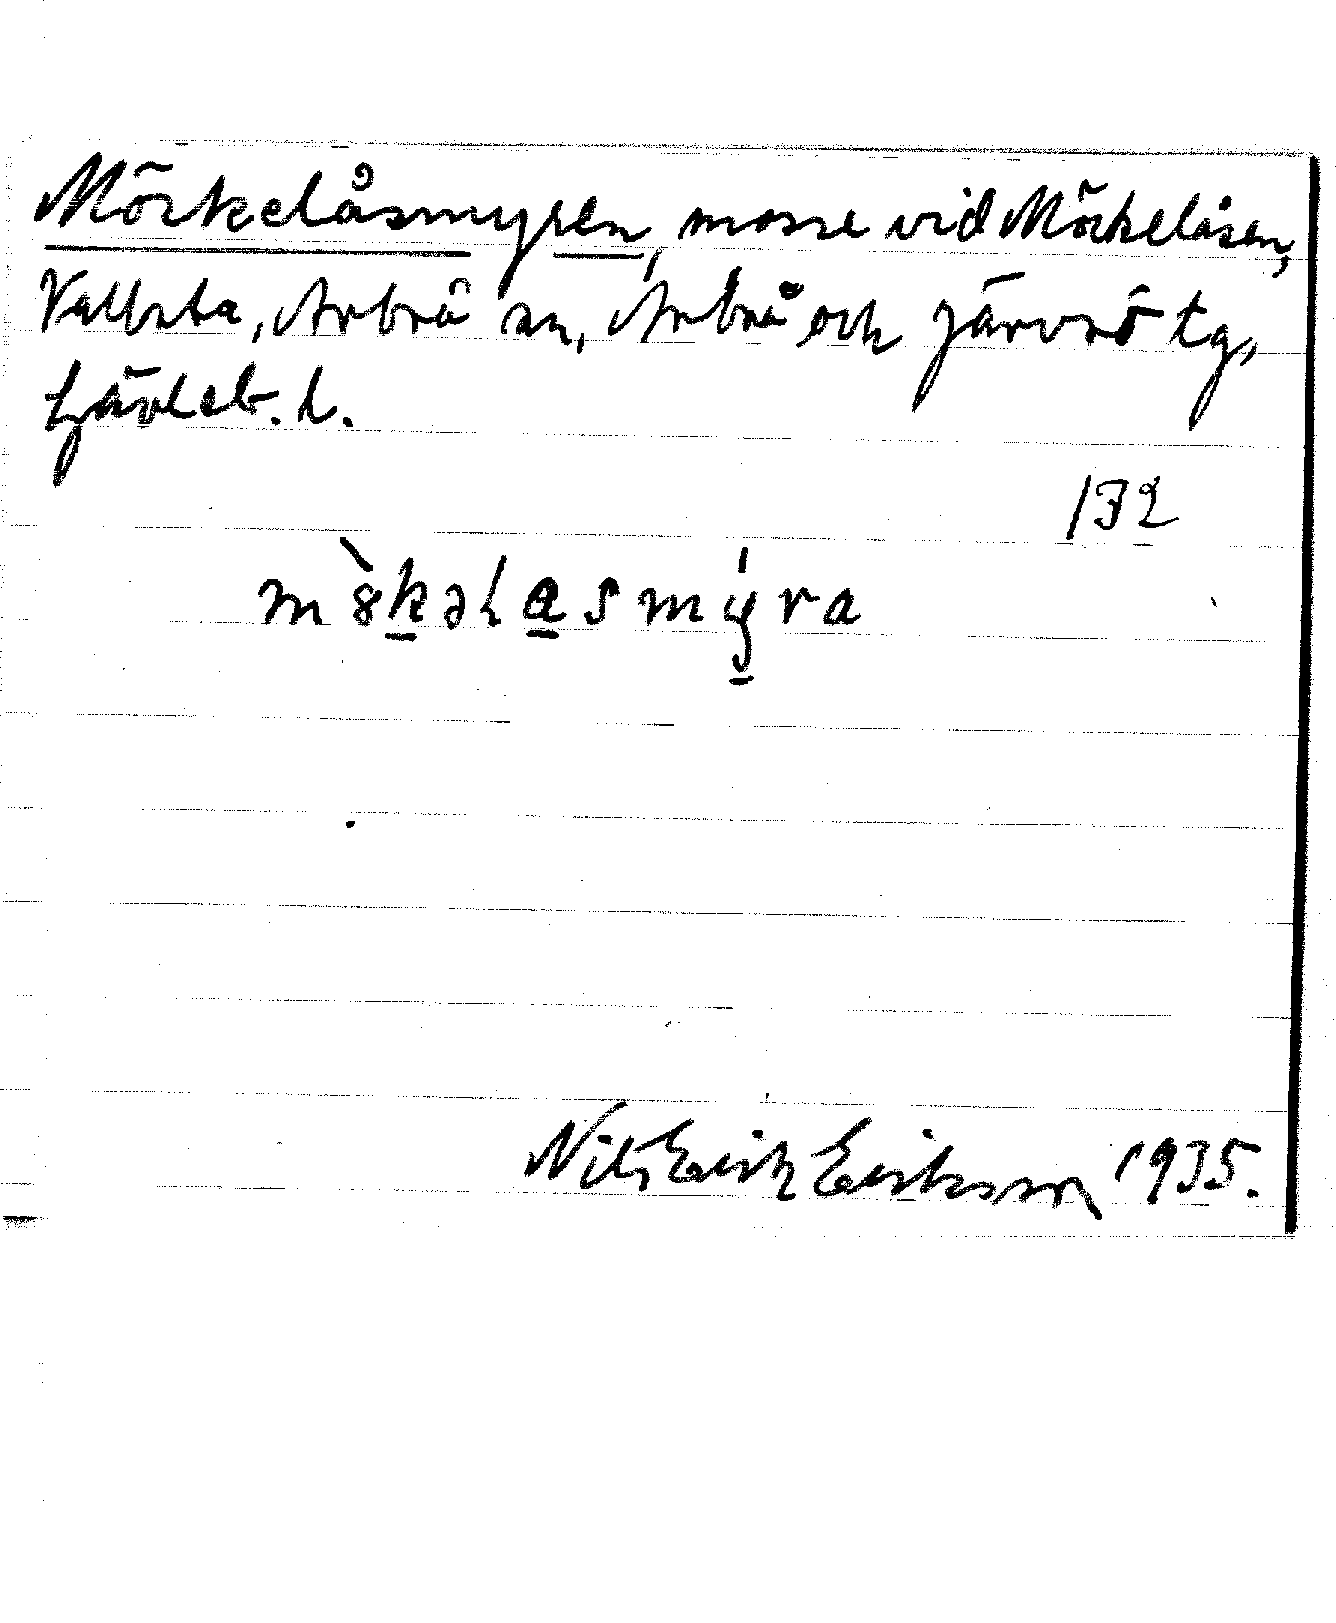 Möckelåsmyren, mosse vid Möckelåsen,
Vallsta, Arbrå sn, Arbrå och Järvsö tg,
Gävleb. l.
132
m8̀kəlasmýra
Nils Erik Eriksson 1935.